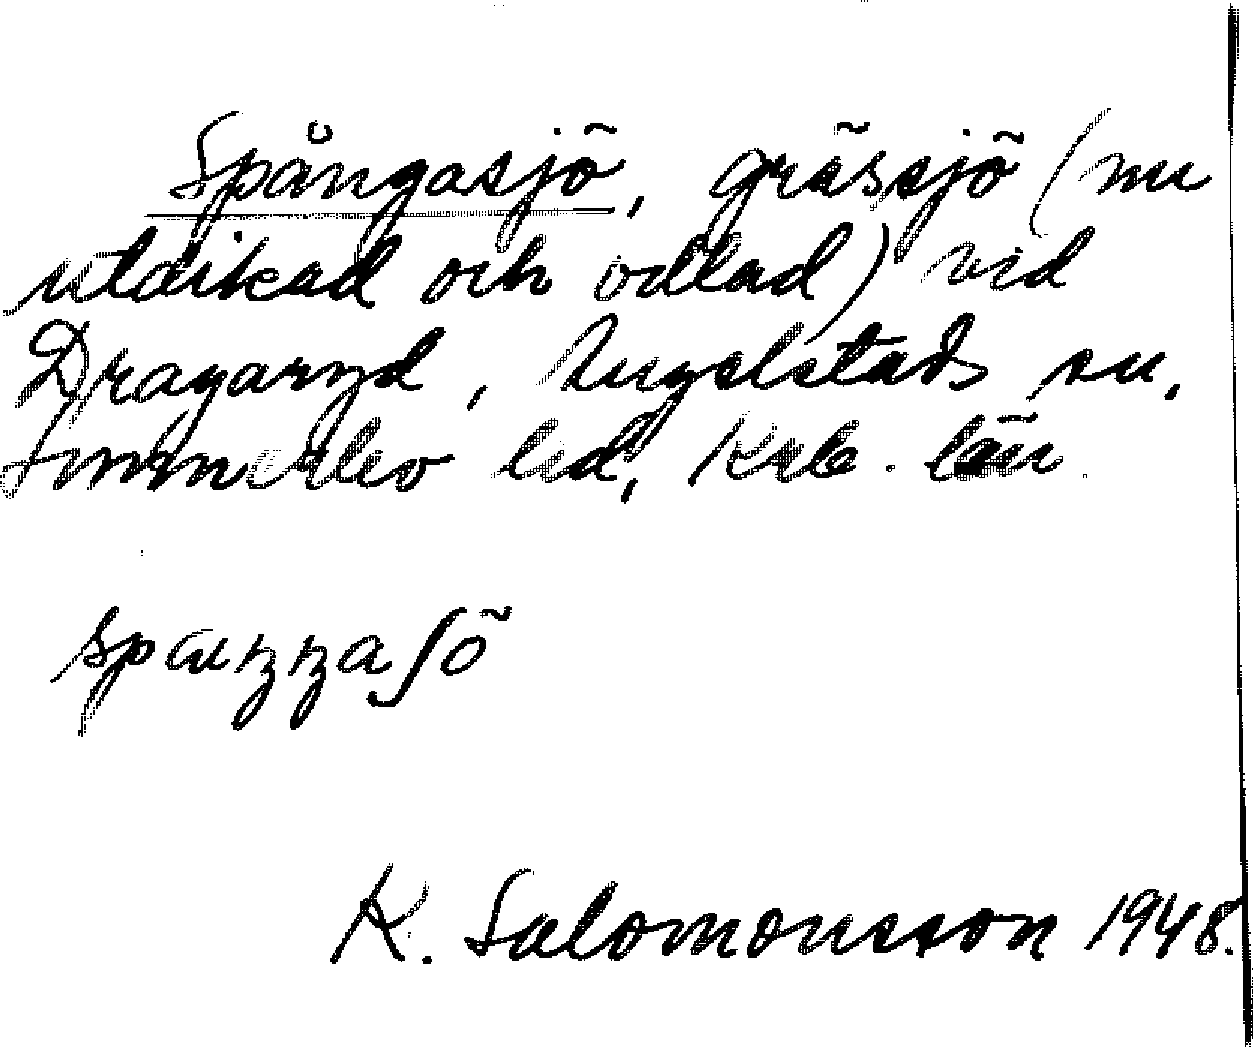 Spångasjö, grässjö (nu
utdikad och odlad) vid
Dragaryd, Angelstads sn,
Sunnerbo hd, Krb. län.
spauŋŋaʃö
K. Salomonsson 1948.